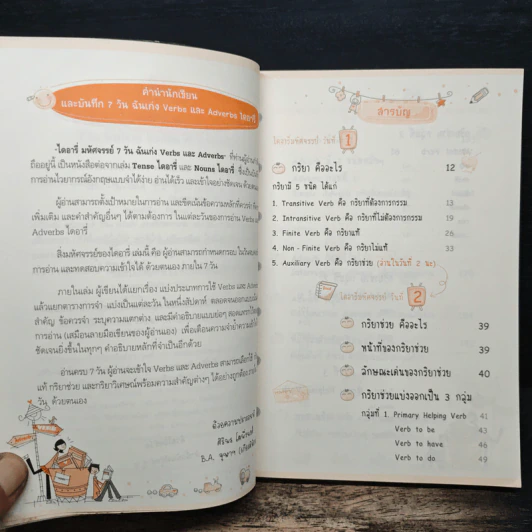 คำนำนักเขียน
และบันทึก 7 วัน ฉันเก่ง Verbs และ Adverbs ไดอารี่
"ไดอารี่ มหัศจรรย์ 7 วัน ฉันเก่ง Verbs และ Adverbs" ที่ท่านผู้อ่าน
ถืออยู่นี้ เป็นหนังสือต่อจากเล่ม Tense ไดอารี่ และ Nouns ไดอารี่
การอ่านไวยากรณ์อังกฤษแบบจำได้ง่าย อ่านได้เร็ว และเข้าใจอย่างชัดเจน
ผู้อ่านสามารถตั้งเป้าหมายในการอ่าน และขีดเน้นข้อความหลักที่ควรจำ
เพิ่มเติม และคำสำคัญอื่นๆ ได้ตามต้องการ ในแต่ละวันของการอ่าน Verbs และ
Adverbs ไดอารี่
สิ่งมหัศจรรย์ของไดอารี่ เล่มนี้ คือ ผู้อ่านสามารถกำหนดกรอบ
การอ่าน และทดสอบความเข้าใจได้ ด้วยตนเอง ภายใน 7 วัน
ภายในเล่ม ผู้เขียนได้แยกเรื่อง แบ่งประเภทการใช้ Verbs และ
แล้วแยกตารางการจำ แบ่งเป็นแต่ละวัน ในหนึ่งสัปดาห์ ตลอดจน
สำคัญ ข้อควรจำ ระบุความแตกต่าง และมีคำอธิบายแบบย่อๆ
การอ่าน (เสมือนลายมือเขียนของผู้อ่านเอง) เพื่อเตือนความจำ
ชัดเจนยิ่งขึ้นในทุกๆ คำอธิบายหลักที่จำเป็นอีกด้วย
อ่านครบ 7 วัน ผู้อ่านจะเข้าใจ Verbs และ Adverbs สามารถเลือกใช้
แท้ กริยาช่วย และกริยาวิเศษณ์พร้อมความสำคัญต่างๆ ได้อย่างถูกต้อง
วัน ด้วยตนเอง
ด้วยความปรารถนาดี
B.A. จุฬาฯ
สารบัญ
วันที่ 1
กริยา คืออะไร 12
กริยามี 5 ชนิด ได้แก่
1. Transitive Verb คือ กริยาที่ต้องการกรรม 13
2. Intransitive Verb คือ กริยาที่ไม่ต้องการกรรม 19
3. Finite Verb คือ กริยาแท้ 26
4. Non - Finite Verb คือ กริยาไม่แท้ 33
5. Auxiliary Verb คือ กริยาช่วย (อ่านในวันที่ 2 นะ)
วันที่ 2
กริยาช่วย คืออะไร 39
หน้าที่ของกริยาช่วย 39
ลักษณะเด่นของกริยาช่วย 40
กริยาช่วยแบ่งออกเป็น 3 กลุ่ม
กลุ่มที่ 1. Primary Helping Verb 41
Verb to be 43
Verb to have 46
Verb to do 49